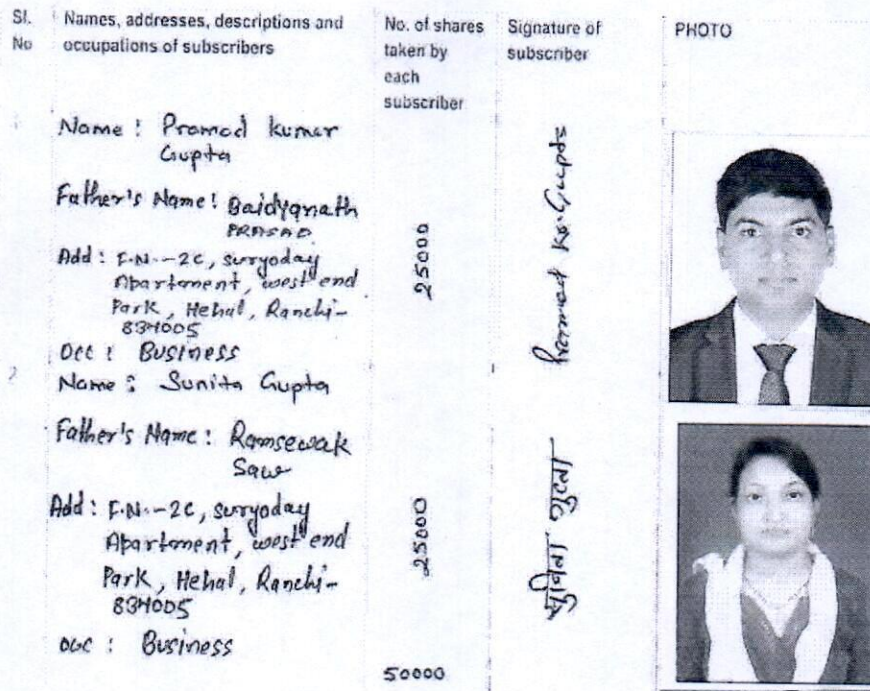 Sl. No
Names, addresses, descriptions and
occupations of subscribers
No. of shares
taken by
each
subscriber
Signature of
subscriber
PHOTO
1
Name : Pramod kumar
Gupta
Father's Name : Baidyanath
PRASAD
Add : F.N.-2C, suryoday
Apartment, west end
Park, Hehal, Ranchi-
834005
Occ : Business
25000
Pramod Kr. Gupta
2
Name : Sunita Gupta
Father's Name : Ramsewak
Saw
Add : F.N.-2C, suryoday
Apartment, west end
Park, Hehal, Ranchi-
834005
occ : Business
25000
सुनिता गुप्ता
50000